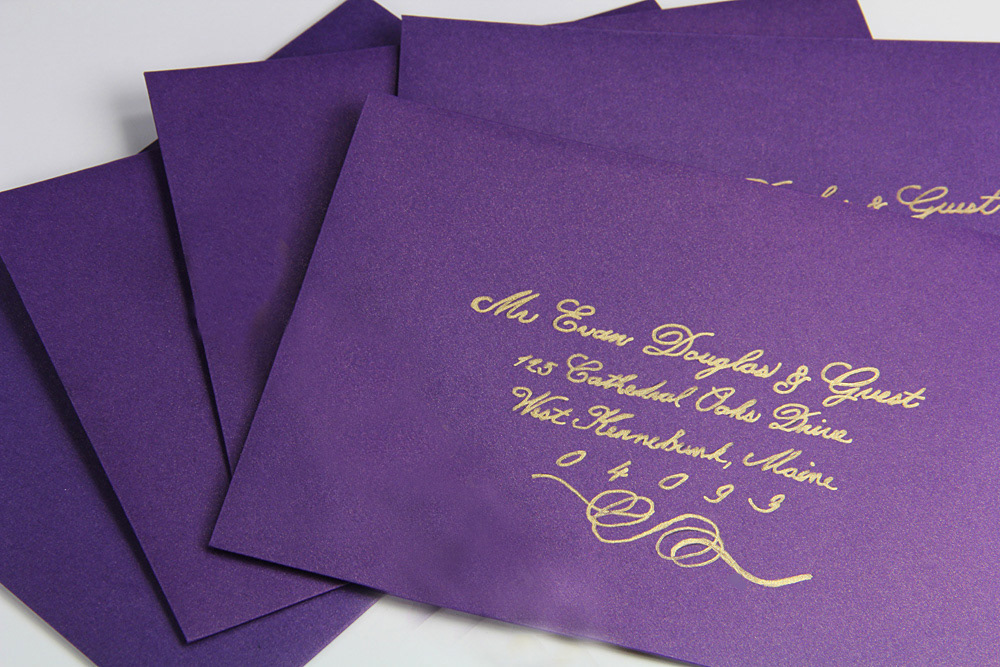 & Guest
Mr Evan Douglas & Guest
125 Cathedral Oaks Drive
West Kennebunk, Maine
0 4 0 9 3